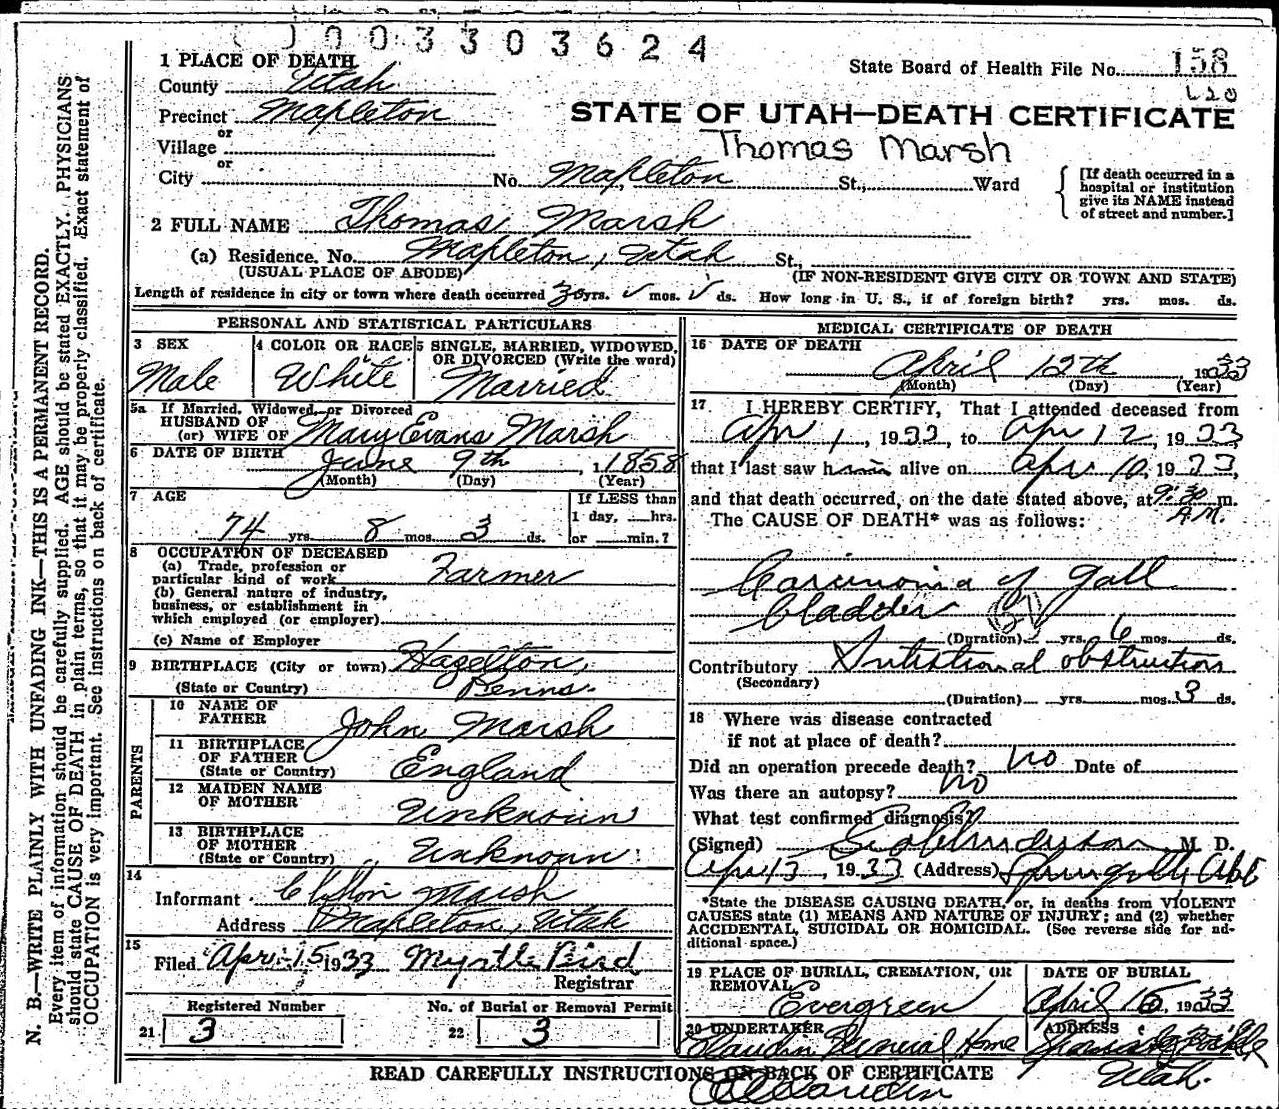 003303624
State Board of Health File No. 158
120
STATE OF UTAH—DEATH CERTIFICATE
Thomas Marsh
1 PLACE OF DEATH
County Utah
Precinct Mapleton
or
Village
or
City No. Mapleton St., Ward
[If death occurred in a hospital or institution give its NAME instead of street and number.]
2 FULL NAME Thomas Marsh
(a) Residence. No. Mapleton, Utah St.,
(USUAL PLACE OF ABODE) (IF NON-RESIDENT GIVE CITY OR TOWN AND STATE)
Length of residence in city or town where death occurred 30 yrs. mos. ds. How long in U. S., if of foreign birth? yrs. mos. ds.
PERSONAL AND STATISTICAL PARTICULARS
3 SEX Male
4 COLOR OR RACE White
5 SINGLE, MARRIED, WIDOWED, OR DIVORCED (Write the word) Married
5a If Married, Widowed, or Divorced
HUSBAND OF
(or) WIFE OF Mary Evans Marsh
6 DATE OF BIRTH June 9th, 1 1858
(Month) (Day) (Year)
7 AGE
74 yrs. 8 mos. 3 ds.
If LESS than 1 day, hrs. or min.?
8 OCCUPATION OF DECEASED
(a) Trade, profession or particular kind of work Farmer
(b) General nature of industry, business, or establishment in which employed (or employer)
(c) Name of Employer
9 BIRTHPLACE (City or town) Hazelton,
(State or Country) Penns.
PARENTS
10 NAME OF FATHER John Marsh
11 BIRTHPLACE OF FATHER (State or Country) England
12 MAIDEN NAME OF MOTHER Unknown
13 BIRTHPLACE OF MOTHER (State or Country) Unknown
14
Informant Clifton Marsh
Address Mapleton, Utah
15
Filed Apr. 15 1933 Myrtle Bird
Registrar
Registered Number No. of Burial or Removal Permit
21 3 22 3
MEDICAL CERTIFICATE OF DEATH
16 DATE OF DEATH
April 12th, 1933
(Month) (Day) (Year)
17 I HEREBY CERTIFY, That I attended deceased from
Apr 1, 1933, to Apr 12, 1933,
that I last saw him alive on Apr 10, 1933,
and that death occurred, on the date stated above, at 9:30 m.
A.M.
The CAUSE OF DEATH* was as follows:
Carcinoma of Gall
bladder
(Duration) yrs. 6 mos. ds.
Contributory Intestional obstruction
(Secondary)
(Duration) yrs. mos. 3 ds.
18 Where was disease contracted
if not at place of death?
Did an operation precede death? no Date of
Was there an autopsy? no
What test confirmed diagnosis?
(Signed) M. D.
Apr 13, 1933 (Address)
*State the DISEASE CAUSING DEATH, or, in deaths from VIOLENT
CAUSES state (1) MEANS AND NATURE OF INJURY; and (2) whether
ACCIDENTAL, SUICIDAL OR HOMICIDAL. (See reverse side for ad-
ditional space.)
19 PLACE OF BURIAL, CREMATION, OR REMOVAL Evergreen
DATE OF BURIAL April 16 1933
20 UNDERTAKER Claudin Funeral Home
ADDRESS Utah.
READ CAREFULLY INSTRUCTIONS ON BACK OF CERTIFICATE
N. B.—WRITE PLAINLY WITH UNFADING INK—THIS IS A PERMANENT RECORD.
Every item of information should be carefully supplied. AGE should be stated EXACTLY. PHYSICIANS
should state CAUSE OF DEATH in plain terms, so that it may be properly classified. Exact statement of
OCCUPATION is very important. See instructions on back of certificate.